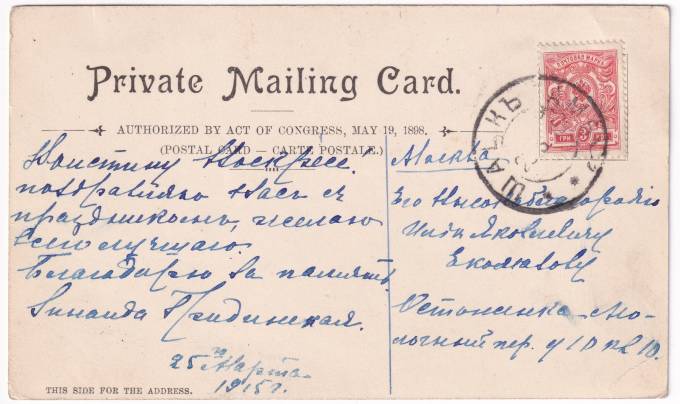 Private Mailing Card.
AUTHORIZED BY ACT OF CONGRESS, MAY 19, 1898.
(POSTAL CARD — CARTE POSTALE.)
Воистину Воскресе.
поздравляю Васъ съ
праздникомъ, желаю
всего лучшаго.
Благодарю за память.
Зинаида
25 Марта
1915 г.
THIS SIDE FOR THE ADDRESS.
ПОЧТОВАЯ МАРКА
3
ШАЦКЪ
Москва
Его Высокоблагородію
Яковлевичу
пер. 10 кв 10.